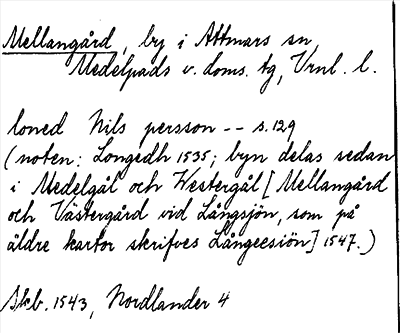 Mellangård, by i Attmars sn,
Medelpads v. doms. tg, Vrnl. l.
loned Nils persson -- s. 129
(noten: Longedh 1535; byn delas sedan
i Medelgål och Westergål [Mellangård
och Västergård vid Långsjön, som på
äldre kartor skrifves Långeesiön] 1547.)
Skb. 1543, Nordlander 4